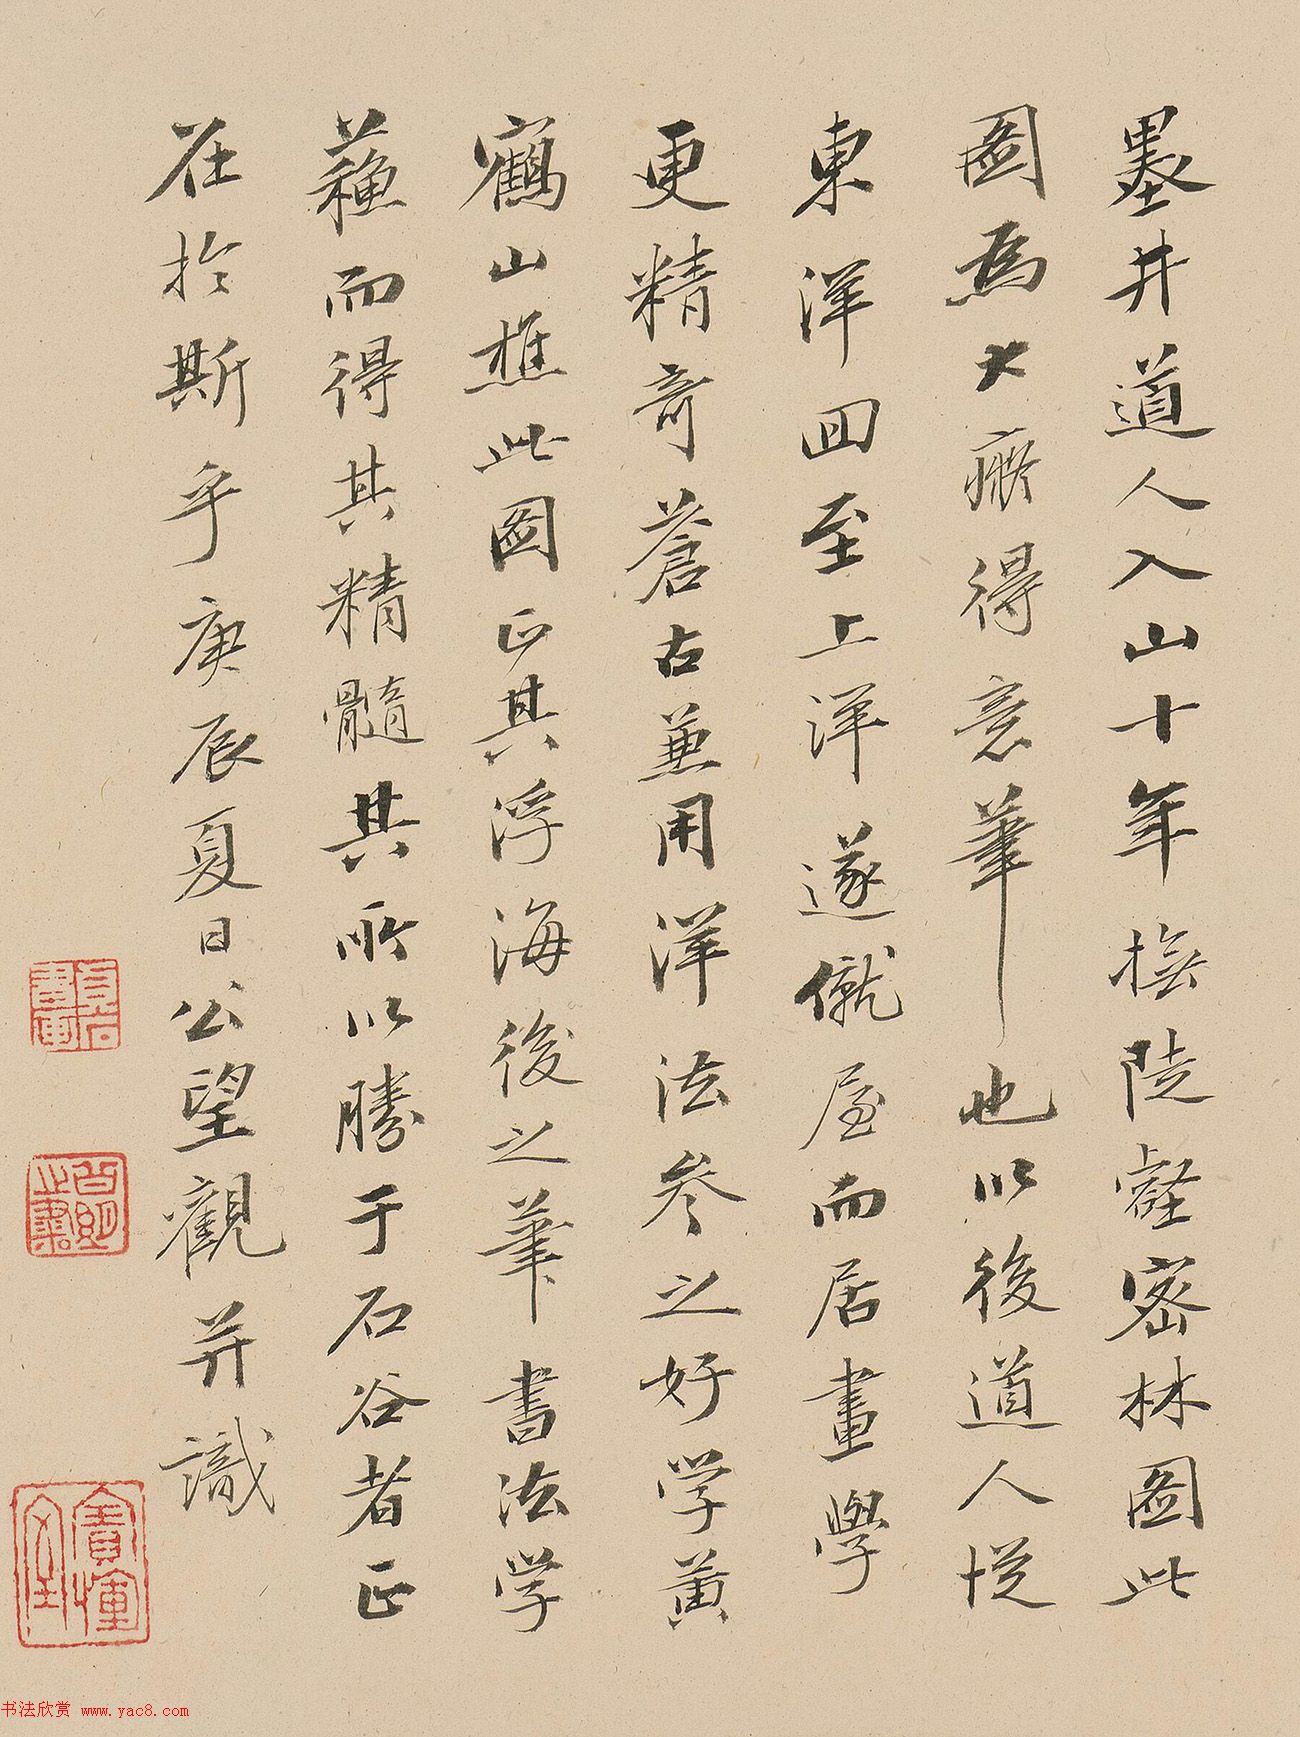 墨井道人入山十年撫陡壑密林圖此
圖為大癡得意筆也以後道人從
東洋回至上洋遂僦屋而居畫學
更精奇蒼古兼用洋法參之好学黃
鶴山樵此圖正其浮海後之筆書法学
蘓而得其精髓其所以勝于石谷者正
在於斯乎庚辰夏日公望觀并識
书法欣赏 www.yac8.com